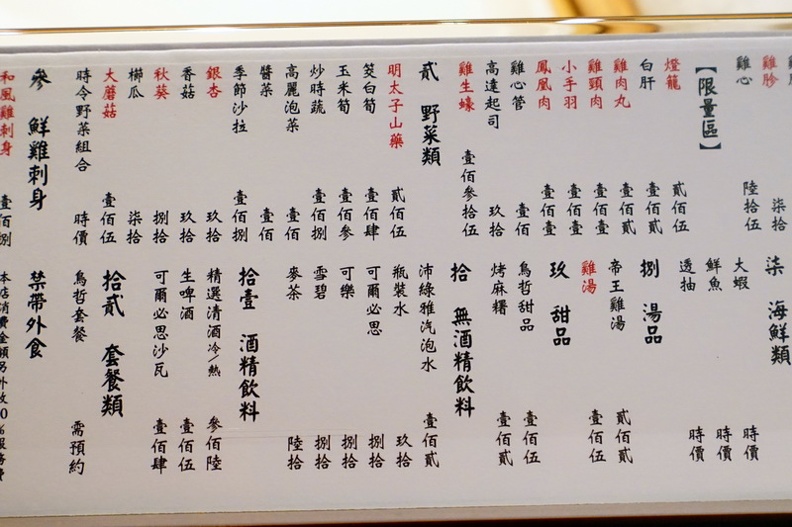 雞胗 柒拾
雞心 陸拾伍
【限量區】
燈籠 貳佰伍
白肝 壹佰貳
雞肉丸 壹佰貳
雞頸肉 壹佰壹
小手羽 壹佰壹
鳳凰肉 壹佰壹
雞心管 壹佰
高達起司 玖拾
雞生蠔 壹佰參拾伍
貳 野菜類
明太子山藥 貳佰伍
筊白筍 壹佰肆
玉米筍 壹佰參
炒時蔬 壹佰捌
高麗泡菜 壹佰
醬菜 壹佰
季節沙拉 壹佰捌
銀杏 玖拾
香菇 玖拾
秋葵 捌拾
櫛瓜 柒拾
大蘑菇 壹佰伍
時令野菜組合 時價
參 鮮雞刺身
和風雞刺身 壹佰捌
柒 海鮮類
大蝦 時價
鮮魚 時價
透抽 時價
捌 湯品
帝王雞湯 貳佰貳
雞湯 壹佰伍
玖 甜品
鳥哲甜品 壹佰伍
烤麻糬 壹佰貳
拾 無酒精飲料
沛綠雅汽泡水 壹佰貳
瓶裝水 玖拾
可爾必思 捌拾
可樂 捌拾
雪碧 捌拾
麥茶 陸拾
拾壹 酒精飲料
精選清酒冷/熱 參佰陸
生啤酒 壹佰伍
可爾必思沙瓦 壹佰肆
拾貳 套餐類
鳥哲套餐 需預約
禁帶外食
本店消費金額另外收10%服務費